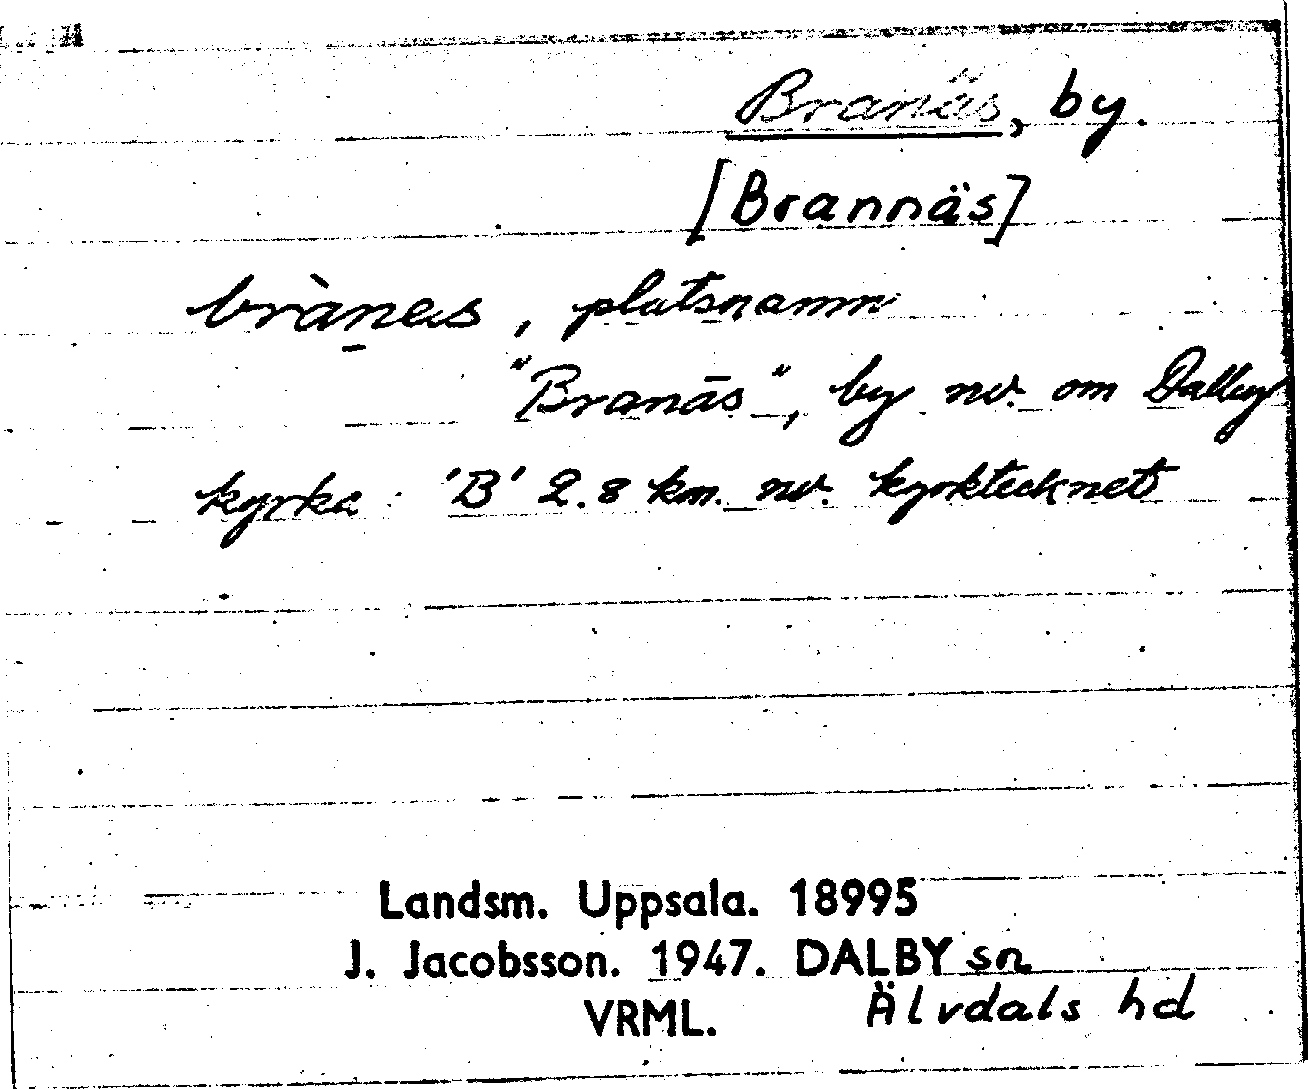 Branäs, by.
[Brannäs]
brànas, platsnamn
"Branäs", by nv. om Dalby
kyrka: 'B' 2.8 km. nv. kyrktecknet
Landsm. Uppsala. 18995
J. Jacobsson. 1947. DALBY sn
VRML. Älvdals hd